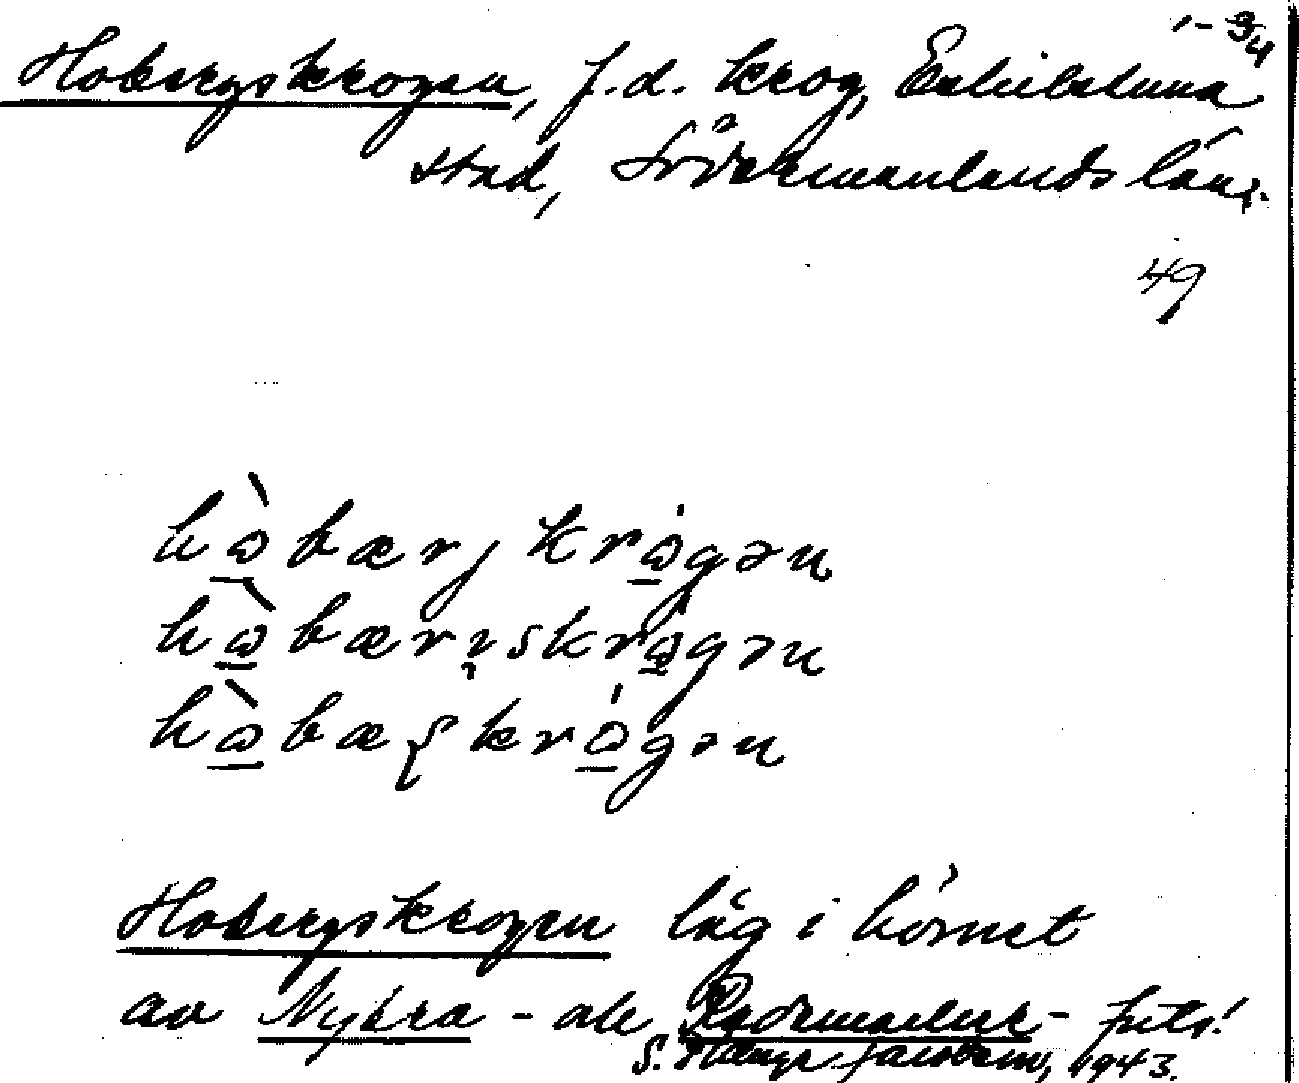 1-3/4
Hobergskrogen, f.d. krog, Eskilstuna
stad, Södermanlands län.
49
hὼbærj krώgən
hὼbærɿskrώgən
hὼbæʂkrώgən
Hobergskrogen låg i hörnet
av Nybro- och Rademacher-
S. 1943.